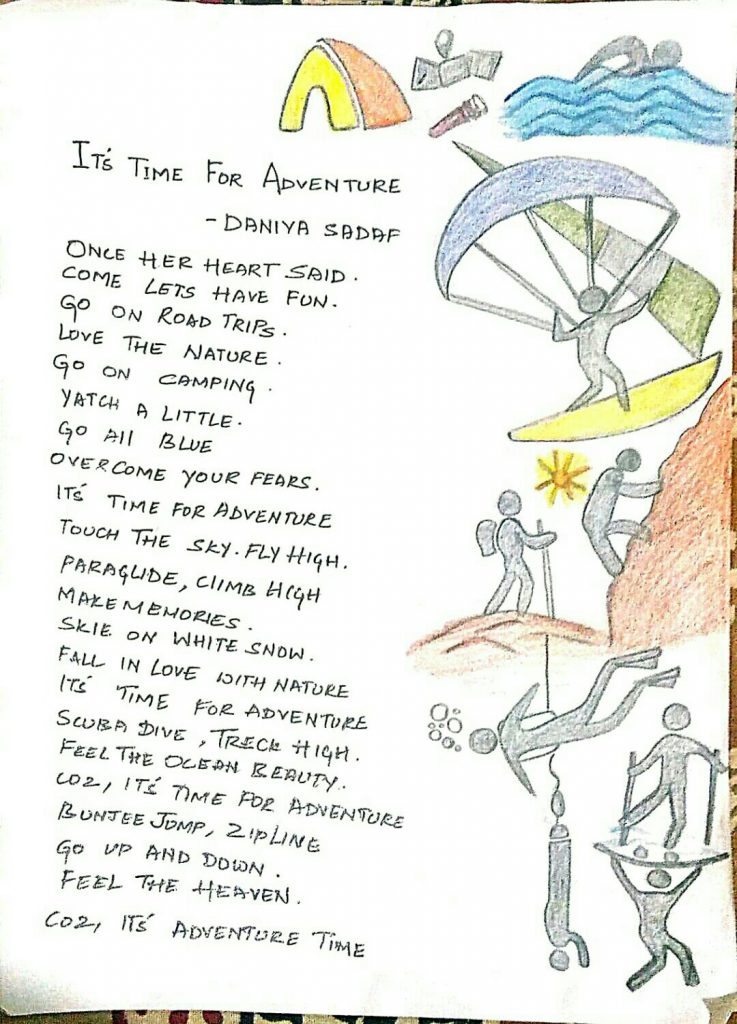 IT'S TIME FOR ADVENTURE
- DANIYA SADAF
ONCE HER HEART SAID.
COME LETS HAVE FUN.
GO ON ROAD TRIPS.
LOVE THE NATURE.
GO ON CAMPING.
YATCH A LITTLE.
GO All BLUE
OVERCOME YOUR FEARS.
IT'S TIME FOR ADVENTURE
TOUCH THE SKY. FLY HIGH.
PARAGLIDE, ClIMB HIGH
MAKE MEMORIES.
SKIE ON WHITE SNOW.
FALL IN LOVE WITH NATURE
IT'S TIME FOR ADVENTURE
SCUBA DIVE, TRECK HIGH.
FEEL THE OCEAN BEAUTY.
COZ, IT'S TIME FOR ADVENTURE
BUNJEE JUMP, ZIPLINE
GO UP AND DOWN.
FEEL THE HEAVEN.
COZ, IT'S ADVENTURE TIME